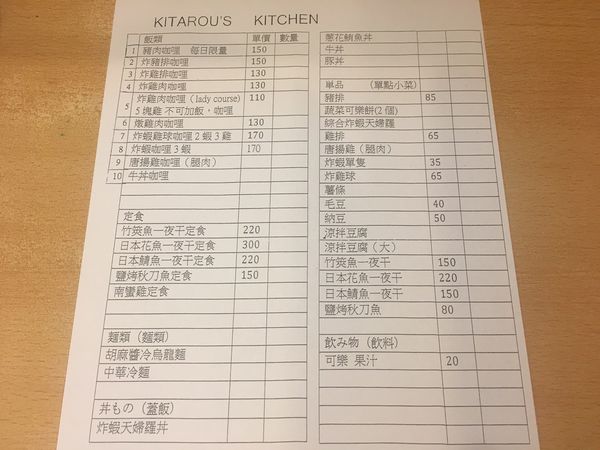 KITAROU'S KITCHEN
飯類 單價 數量
1 豬肉咖哩 每日限量 150
2 炸豬排咖哩 150
3 炸雞排咖哩 130
4 炸雞肉咖哩 130
5 炸雞肉咖哩（lady course） 110
5 塊雞 不可加飯，咖哩
6 燉雞肉咖哩 130
7 炸蝦雞球咖哩 2 蝦 3 雞 170
8 炸蝦咖哩 3 蝦 170
9 唐揚雞咖哩（腿肉）
10 牛丼咖哩
定食
竹筴魚一夜干定食 220
日本花魚一夜干定食 300
日本鯖魚一夜干定食 220
鹽烤秋刀魚定食 150
南蠻雞定食
麺類（麵類）
胡麻醬冷烏龍麵
中華冷麵
丼もの（蓋飯）
炸蝦天婦羅丼
蔥花鮪魚丼
牛丼
豚丼
单品 （單點小菜）
豬排 85
蔬菜可樂餅(2 個)
綜合炸蝦天婦羅
雞排 65
唐揚雞（腿肉）
炸蝦單隻 35
炸雞球 65
薯條
毛豆 40
納豆 50
涼拌豆腐
涼拌豆腐（大）
竹筴魚一夜干 150
日本花魚一夜干 220
日本鯖魚一夜干 150
鹽烤秋刀魚 80
飲み物（飲料）
可樂 果汁 20